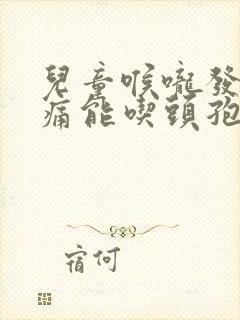 兒童喉嚨發
痛能喫頭孢
宿何